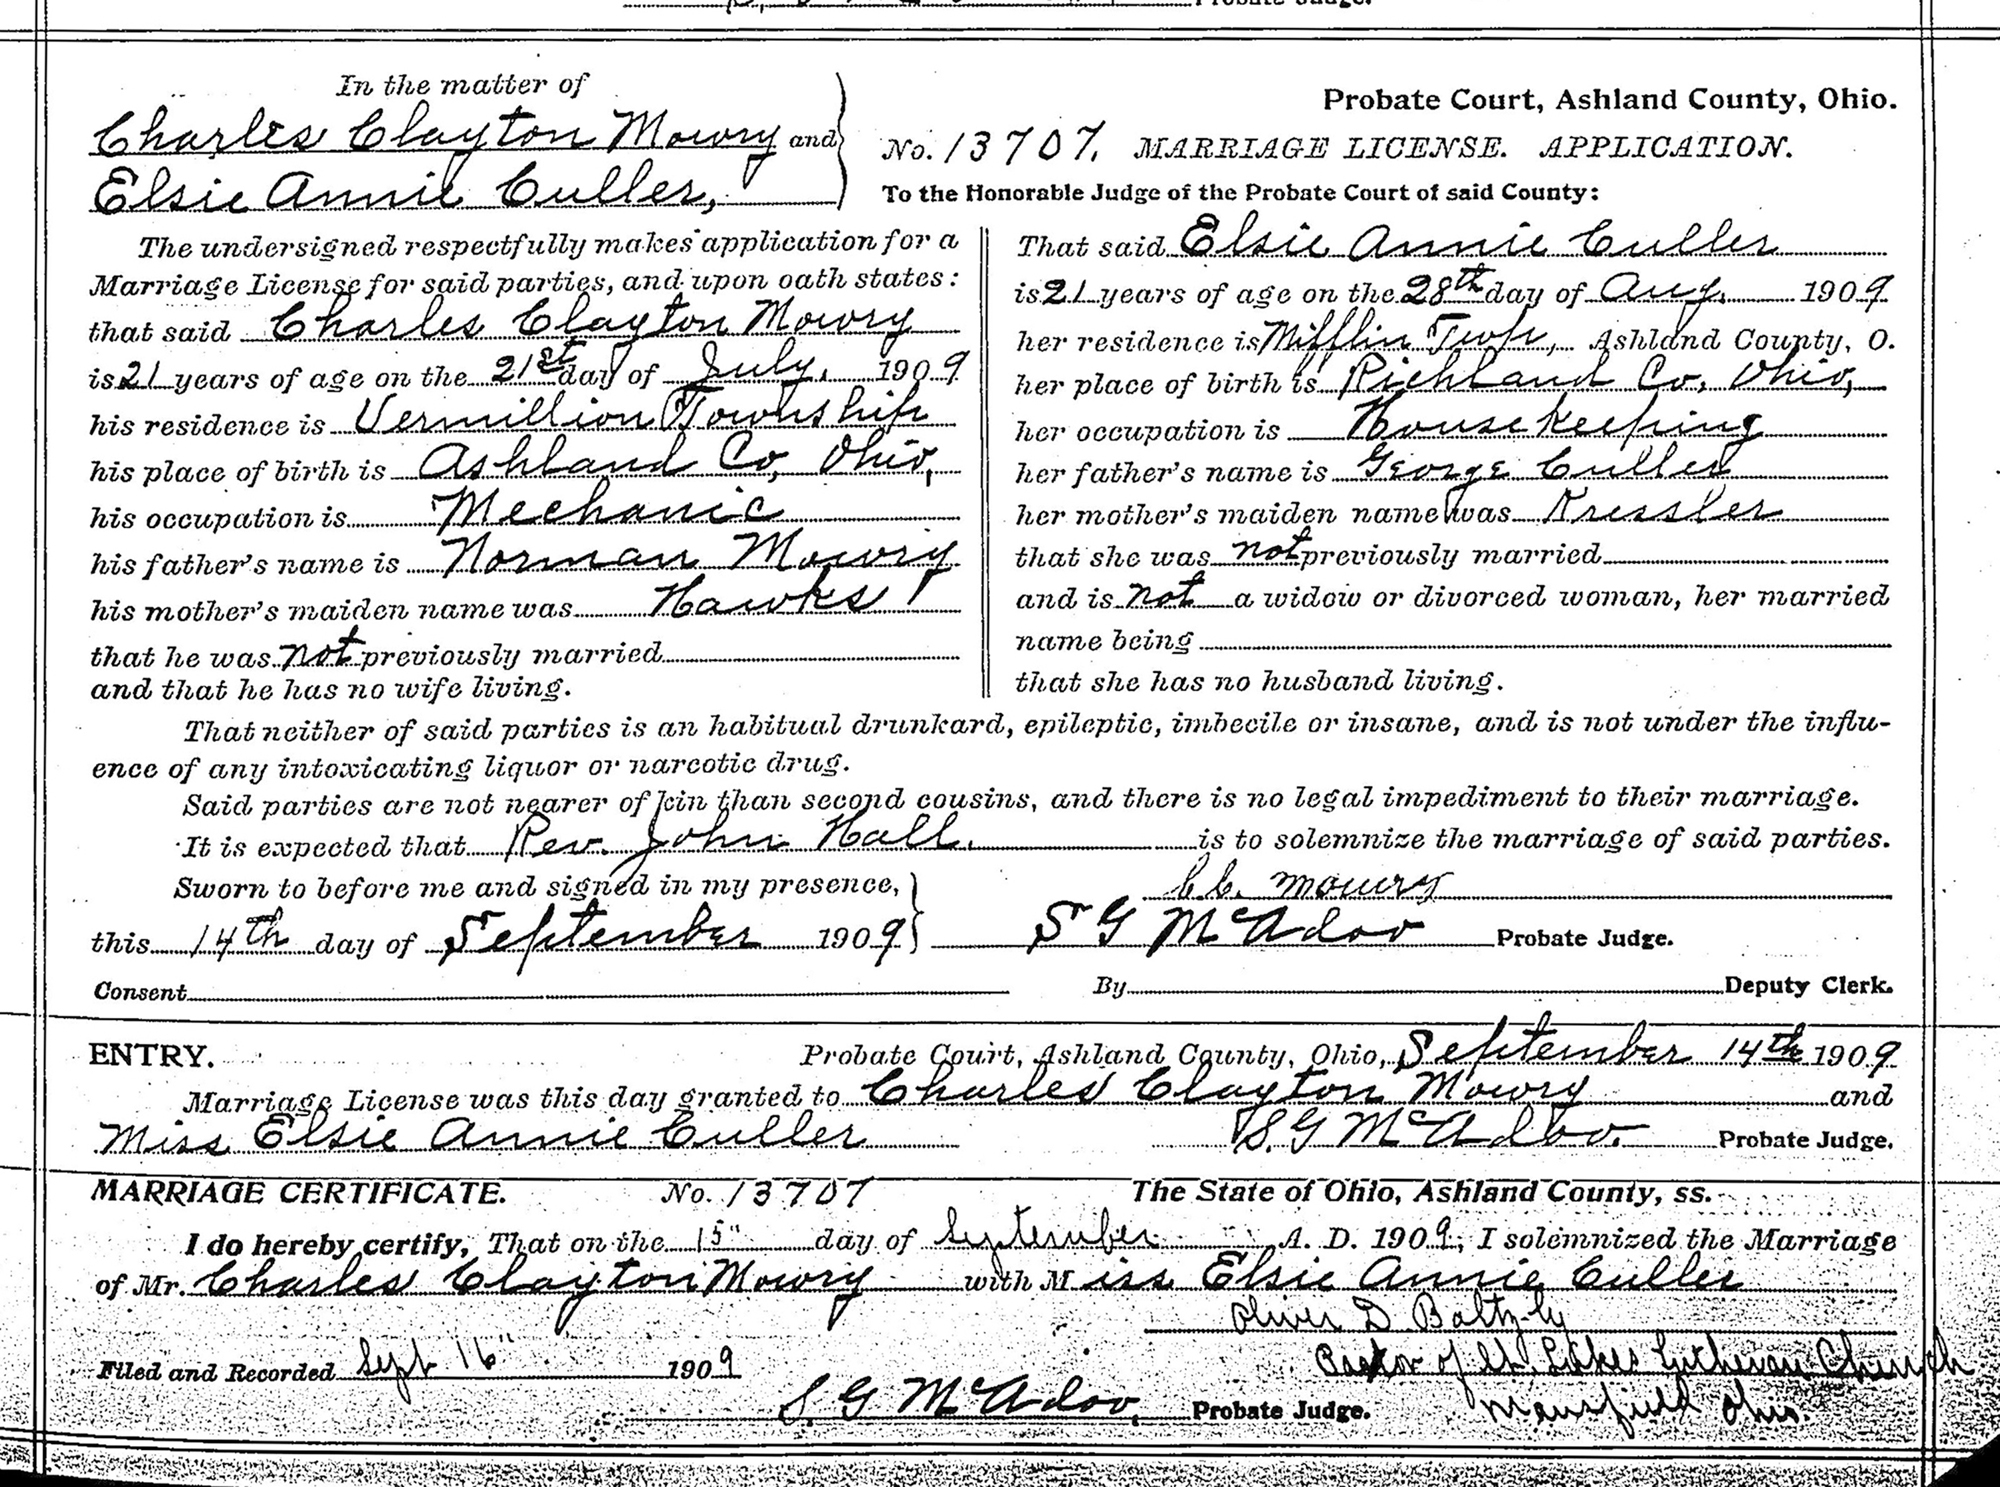 Probate Judge.
In the matter of
Charles Clayton Mowry and
Elsie Annie Culler,
Probate Court, Ashland County, Ohio.
No. 13707. MARRIAGE LICENSE. APPLICATION.
To the Honorable Judge of the Probate Court of said County:
The undersigned respectfully makes application for a
Marriage License for said parties, and upon oath states:
that said Charles Clayton Mowry
is 21 years of age on the 21st day of July, 1909
his residence is Vermillion Township
his place of birth is Ashland Co, Ohio,
his occupation is Mechanic
his father's name is Norman Mowry
his mother's maiden name was Hawks
that he was not previously married
and that he has no wife living.
That said Elsie Annie Culler
is 21 years of age on the 28th day of Aug. 1909
her residence is Mifflin Twp, Ashland County, O.
her place of birth is Richland Co, Ohio,
her occupation is Housekeeping
her father's name is George Culler
her mother's maiden name was Kressler
that she was not previously married
and is not a widow or divorced woman, her married
name being
that she has no husband living.
That neither of said parties is an habitual drunkard, epileptic, imbecile or insane, and is not under the influ-
ence of any intoxicating liquor or narcotic drug.
Said parties are not nearer of kin than second cousins, and there is no legal impediment to their marriage.
It is expected that Rev. John Hall. is to solemnize the marriage of said parties.
Sworn to before me and signed in my presence,
C.C. Mowry
this 14th day of September 1909
S G McAdoo Probate Judge.
Consent By Deputy Clerk.
ENTRY. Probate Court, Ashland County, Ohio, September 14th 1909
Marriage License was this day granted to Charles Clayton Mowry and
Miss Elsie Annie Culler S. G McAdoo. Probate Judge.
MARRIAGE CERTIFICATE. No. 13707 The State of Ohio, Ashland County, ss.
I do hereby certify, That on the 15" day of September A. D. 1909, I solemnized the Marriage
of Mr. Charles Clayton Mowry with Miss Elsie Annie Culler
Oliver D. Baltzly
Pastor of St. Lukes Lutheran Church
Mansfield Ohio.
Filed and Recorded Sept 16" 1909
S. G McAdoo, Probate Judge.